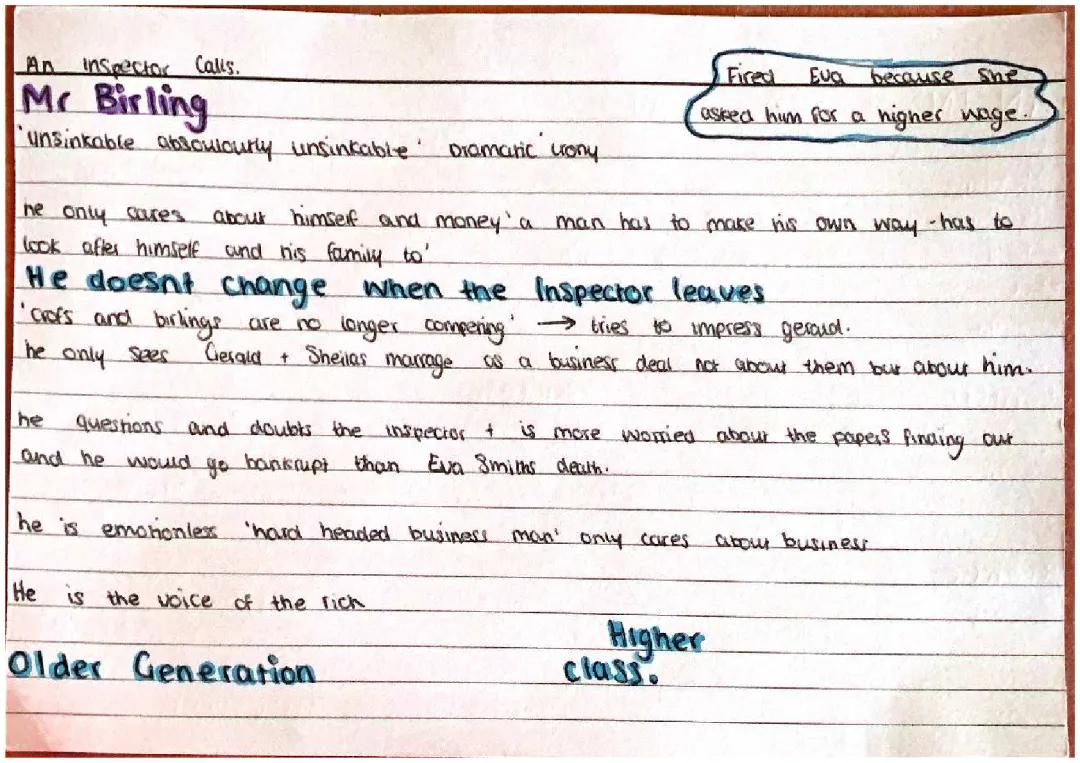 An Inspector Calls.
Fired Eva because she
asked him for a higher wage.
Mr Birling
'unsinkable absoulourly unsinkable' Dramatic irony
he only cares about himself and money 'a man has to make his own way - has to
look after himself and his family to'
He doesnt change when the Inspector leaves
'Crofs and birlings are no longer compering' → tries to impress gerald.
he only sees Gerald + Sheilas marrage as a business deal not about them but about him.
he questions and doubts the inspector + is more worried about the papers finding out
and he would go bankrupt than Eva Smiths death.
he is emotionless 'hard headed business man' only cares about business
He is the voice of the rich
Higher
Older Generation class.